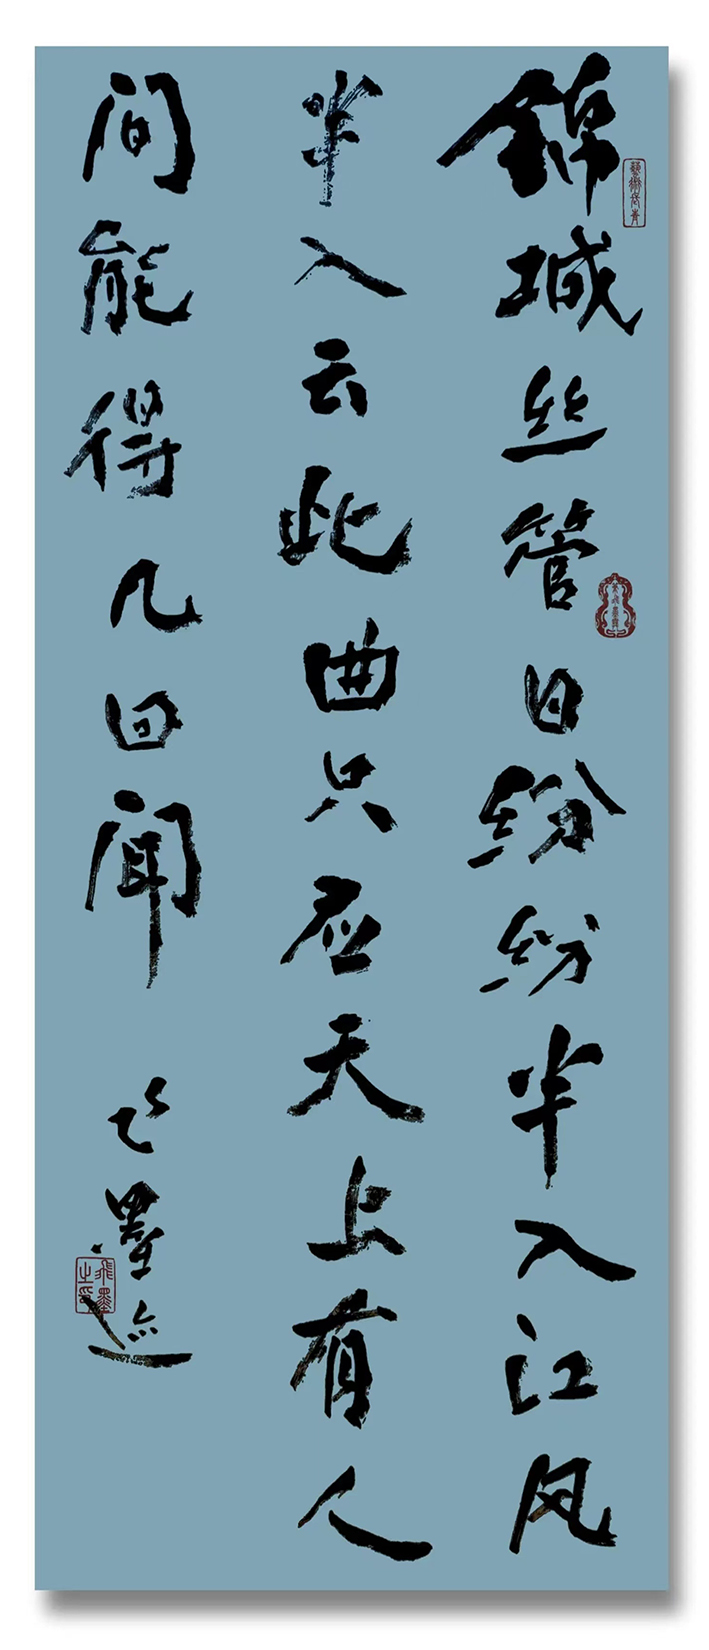 錦城丝管日纷纷半入江风
半入云此曲只应天上有人
间能得几回闻
飞墨迹
藝術長青
飛墨之印